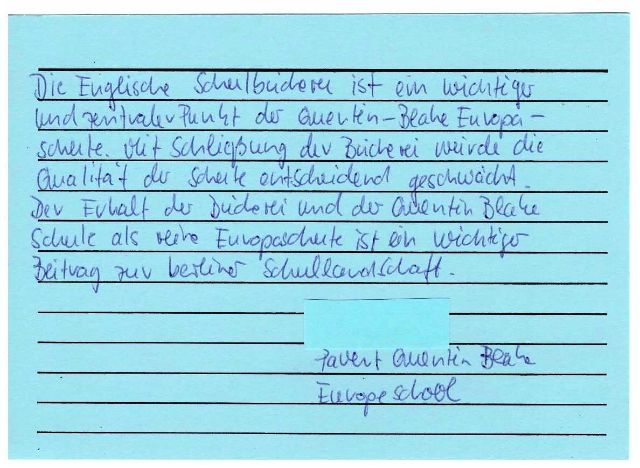 Die Englische Schulbücherei ist ein wichtiger
und zentraler Punkt der Quentin-Blake Europa-
schule. Mit Schließung der Bücherei würde die
Qualität der Schule entscheidend geschwächt.
Der Erhalt der Bücherei und der Quentin Blake
Schule als reine Europaschule ist ein wichtiger
Beitrag zur berliner Schullandschaft.
Parent Quentin Blake
Europe school